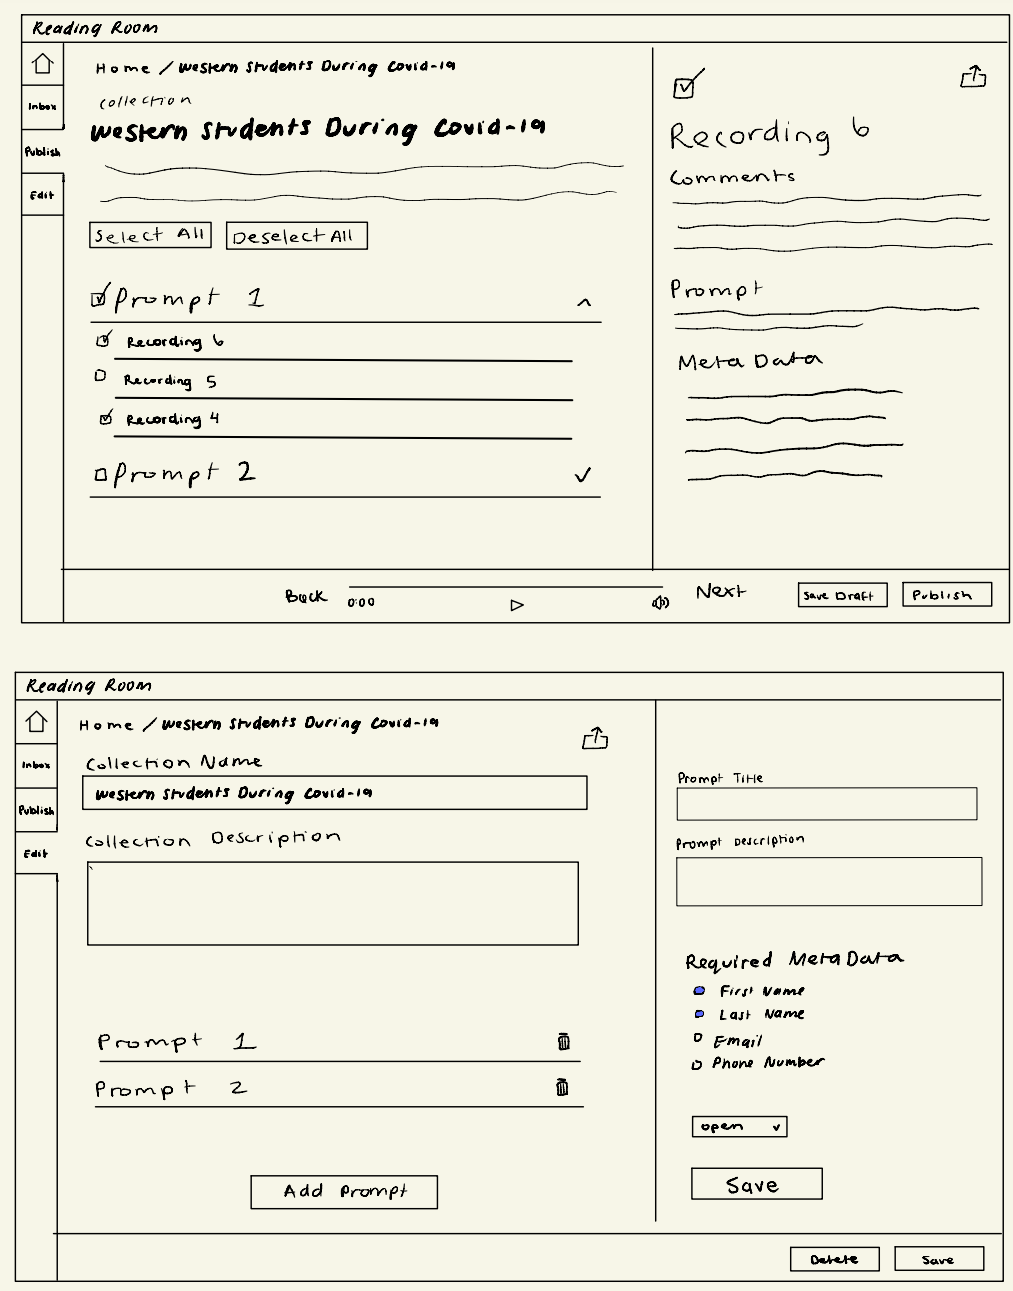 Reading Room
Home / Western Students During Covid-19
Inbox
Publish
Edit
Collection
Western Students During Covid-19
Select All
Deselect All
Prompt 1
Recording 6
Recording 5
Recording 4
Prompt 2
Recording 6
Comments
Prompt
Meta Data
Back
0:00
Next
Save Draft
Publish
Reading Room
Home / Western Students During Covid-19
Inbox
Publish
Edit
Collection Name
Western Students During Covid-19
Collection Description
Prompt 1
Prompt 2
Add Prompt
Prompt Title
Prompt Description
Required Meta Data
First Name
Last Name
Email
Phone Number
open
Save
Delete
Save